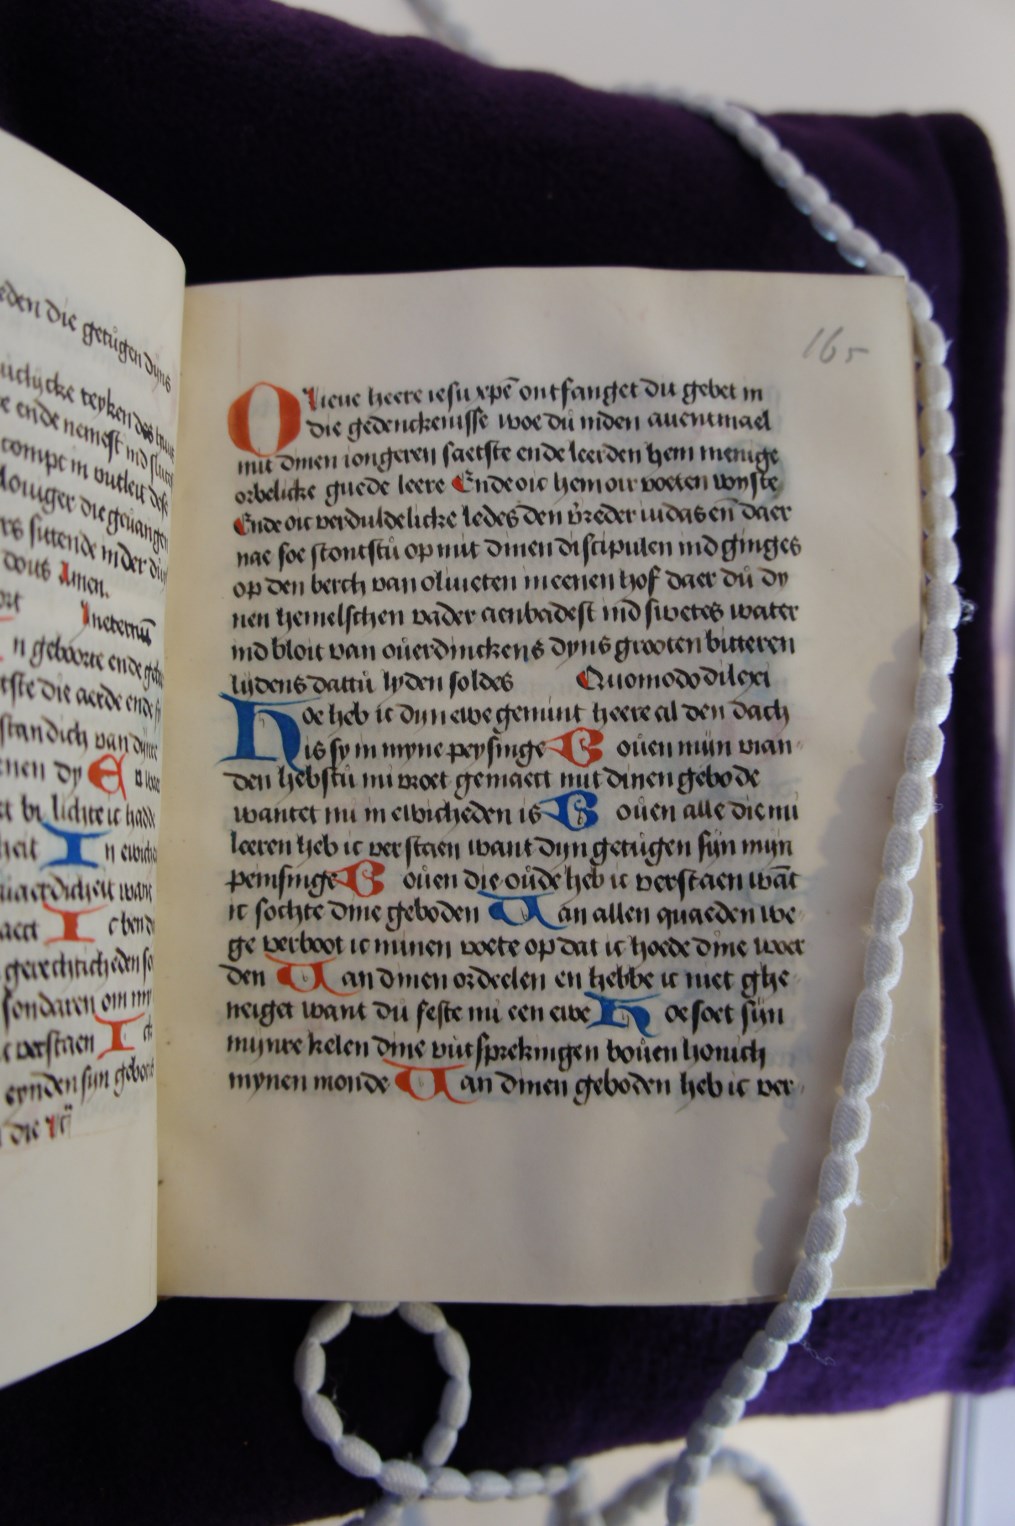 eden die getůgen dyns
teyken des
e ende nemest ind
compt in
die geuangen
rs sittende in der
Amen.
In eternū
n geboorte ende
tste die aerde ende
standich van
nen dy E
bi lichte ic hadd
heit I n ewich
want
aect I c ben
gerechticheden
sondaren om
c verstaen I ck
eynden syn gebo
die
165
O lieue heere iesu xpē ontfanget dit gebet in
die gedenckenisse woe dů in den auentmael
mit dinen iongeren saetste ende leerden hem menige
orbelicke guede leere Ende oic hem oir voeten wyste
Ende oic verduldelicke ledes den vreder iudas eñ daer
nae soe stontstů op mit dinen discipulen ind ginges
op den berch van olineten in eenen hof daer dů dy
nen hemelschen vader aenbadest ind swetes water
ind bloit van ouerdinckens dyns grooten bitteren
lydens dattů lyden soldes Quomodo dilexi
Hoe heb ic dyn ewe gemint heere al den dach
is sy in myne peysinge Bouen myn vian-
den hebstů mi vroet gemaect mit dinen gebode
wantet mi in ewicheden is Bouen alle die mi
leeren heb ic verstaen want dyn getůgen sijn myn
peinsinge Bouen die oůde heb ic verstaen wāt
ic sochte dine geboden Uan allen quaeden we-
ge verboot ic minen voete op dat ic hoede dine woer
den Uan dinen ordeelen en hebbe ic niet ghe-
neiget want dů seste mi een ewe Hoe soet sijn
mynre kelen dine vůtsprekingen boůen honich
mynen monde Uan dinen geboden heb ic ver-